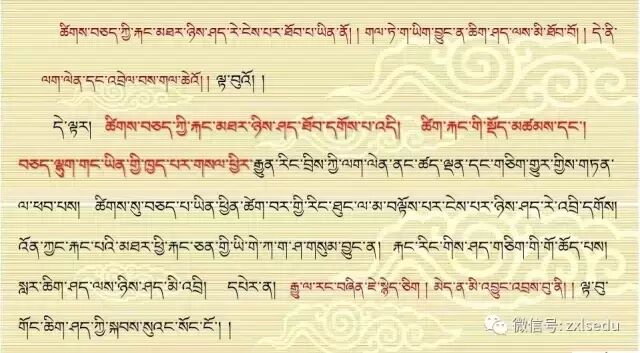 ཚིགས་བཅད་ཀྱི་རྐང་མཐར་ཉིས་ཤད་རེ་ངེས་པར་ཐོབ་པ་ཡིན་ནོ། ། གལ་ཏེ་ག་ཡིག་བྱུང་ན་ཆིག་ཤད་ལས་མི་ཐོབ་བོ། ། དེ་ནི་
ལག་ལེན་དང་འབྲེལ་བས་གལ་ཆེའོ། ། ལྟ་བུའོ། །
དེ་ལྟར། ཚིགས་བཅད་ཀྱི་རྐང་མཐར་ཉིས་ཤད་ཐོབ་དགོས་པ་འདི། ཚིག་རྐང་གི་སྡོད་མཚམས་དང་།
བཅད་ལྷུག་གང་ཡིན་གྱི་ཁྱད་པར་གསལ་ཕྱིར་རྒྱུན་རིང་བྲིས་ཀྱི་ལག་ལེན་ནང་ཚད་ལྡན་དང་གཅིག་གྱུར་གྱིས་གཏན་
ལ་ཕབ་པས། ཚིགས་སུ་བཅད་པ་ཡིན་ཕྱིན་ཚེག་བར་གྱི་རིང་ཐུང་ལ་མ་བལྟོས་པར་ངེས་པར་ཉིས་ཤད་རེ་འབྲི་དགོས།
འོན་ཀྱང་རྐང་པའི་མཐར་ཕྱི་རྐང་ཅན་གྱི་ཡི་གེ་ཀ་ག་ཤ་གསུམ་བྱུང་ན། རྐང་རིང་གིས་ཤད་གཅིག་གི་གོ་ཆོད་པས།
སླར་ཆིག་ཤད་ལས་ཉིས་ཤད་མི་འབྲི། དཔེར་ན། རྒྱུ་ལ་རང་བཞིན་ཇེ་སྙེད་ཅིག །མེད་ན་མི་འབྱུང་འབྲས་བུ་ནི། །ལྟ་བུ་
གོང་ཆིག་ཤད་ཀྱི་སྐབས་སུའང་སོང་ངོ་། །
微信号: zxlsedu